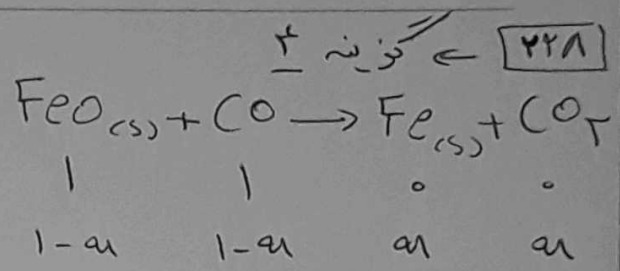 ۲۲۸ ← گزینه ۴
FeO(s) + CO → Fe(s) + CO۲
۱ ۱ ۰ ۰
۱-x ۱-x x x